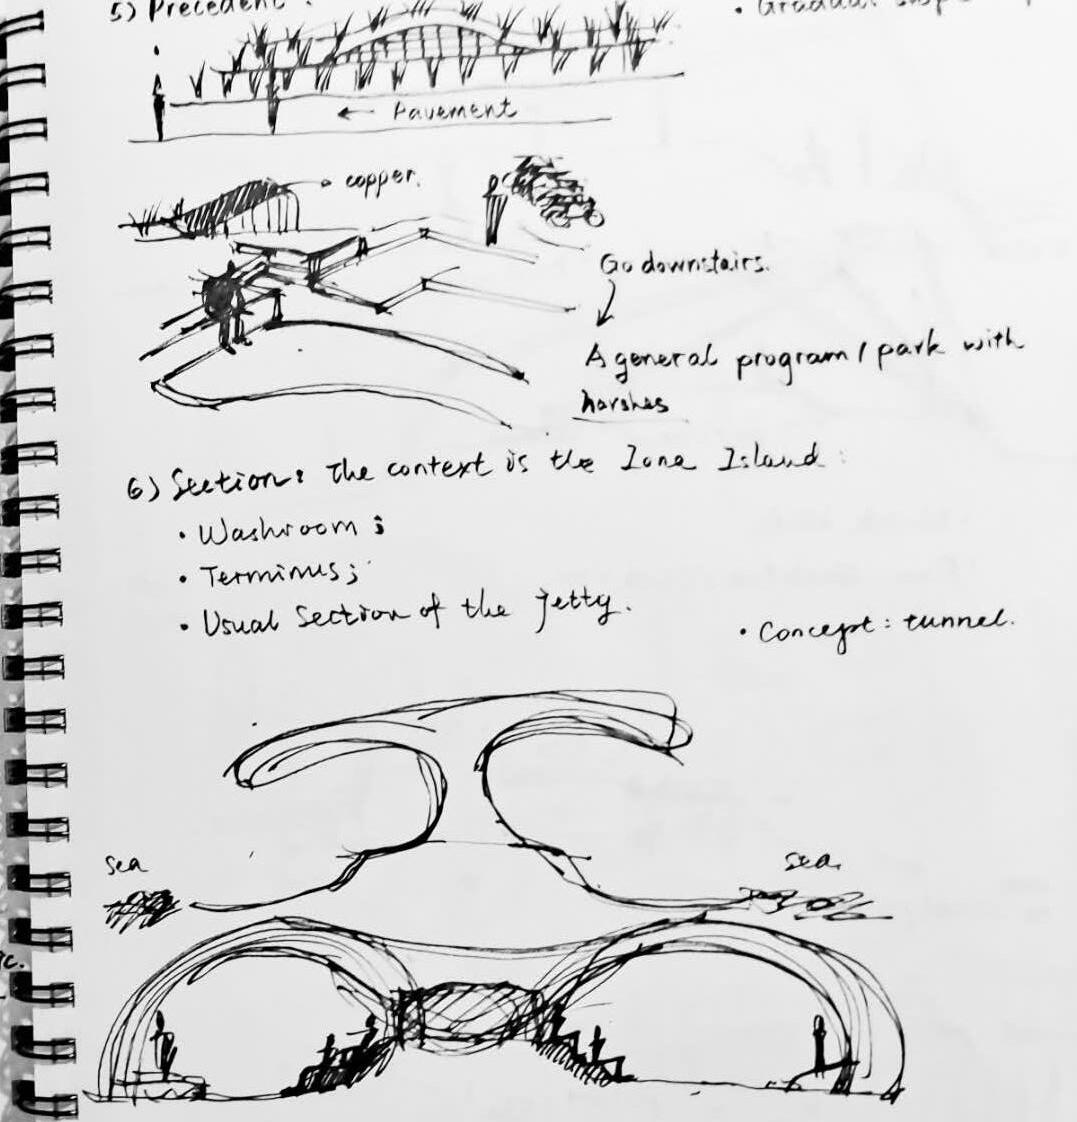 5) Precedent:
• Gradual
← Pavement
copper.
Go downstairs.
A general program / park with
harshes
6) Section: The context is the Iona Island:
• Washroom;
• Terminus;
• Usual Section of the jetty.
• Concept: tunnel.
Sea
Sea.